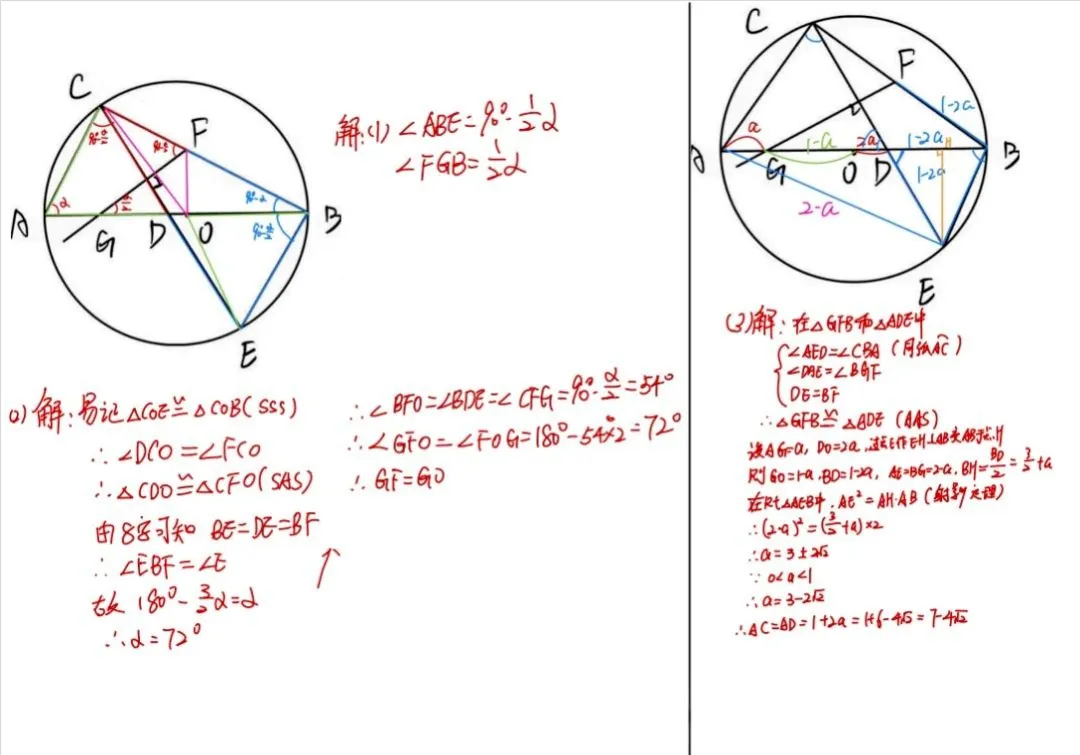 C
F
A
G
D
O
B
E
α
解:(1) ∠ABE=90°-½α
∠FGB=½α
(2) 解: 易记△COE≌△COB(SSS)
∴∠DCO=∠FCO
∴△CDO≌△CFO(SAS)
由8字可知 BE=DE=BF
∴∠EBF=∠E
故 180°-3/2α=α
∴α=72°
∴∠BFO=∠BDE=∠CFG=90°-α/2=54°
∴∠GFO=∠FOG=180°-54°×2=72°
∴GF=GO
C
F
A
G
O
D
B
E
H
a
1-a
2a
1-2a
1-2a
1-2a
2-a
(3)解: 在△GFB和△ADE中
∠AED=∠CBA (同弧AC)
∠DAE=∠BGF
DE=BF
∴△GFB≌△ADE (AAS)
设AG=a, DO=2a, 过点E作EH⊥AB交AB于点H
则GO=1-a, BD=1-2a, AE=BG=2-a, BH=BD/2=3/2+a
在Rt△AEB中, AE²=AH·AB (射影定理)
∴(2-a)²=(3/2+a)×2
∴a=3±2√2
∵0<a<1
∴a=3-2√2
∴AC=AD=1+2a=1+6-4√2=7-4√2